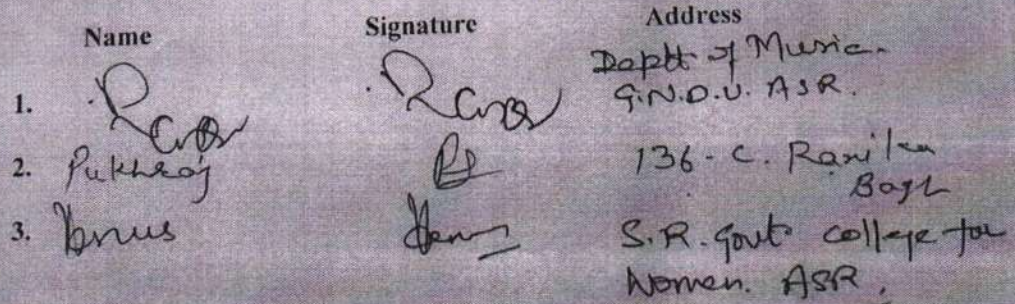 Name Signature Address
1. Deptt of Music.
G.N.D.U. ASR.
2. Pukhraj 136 - C. Rani ka
Bagh
3. Venus S.R. Govt college for
Women. ASR.